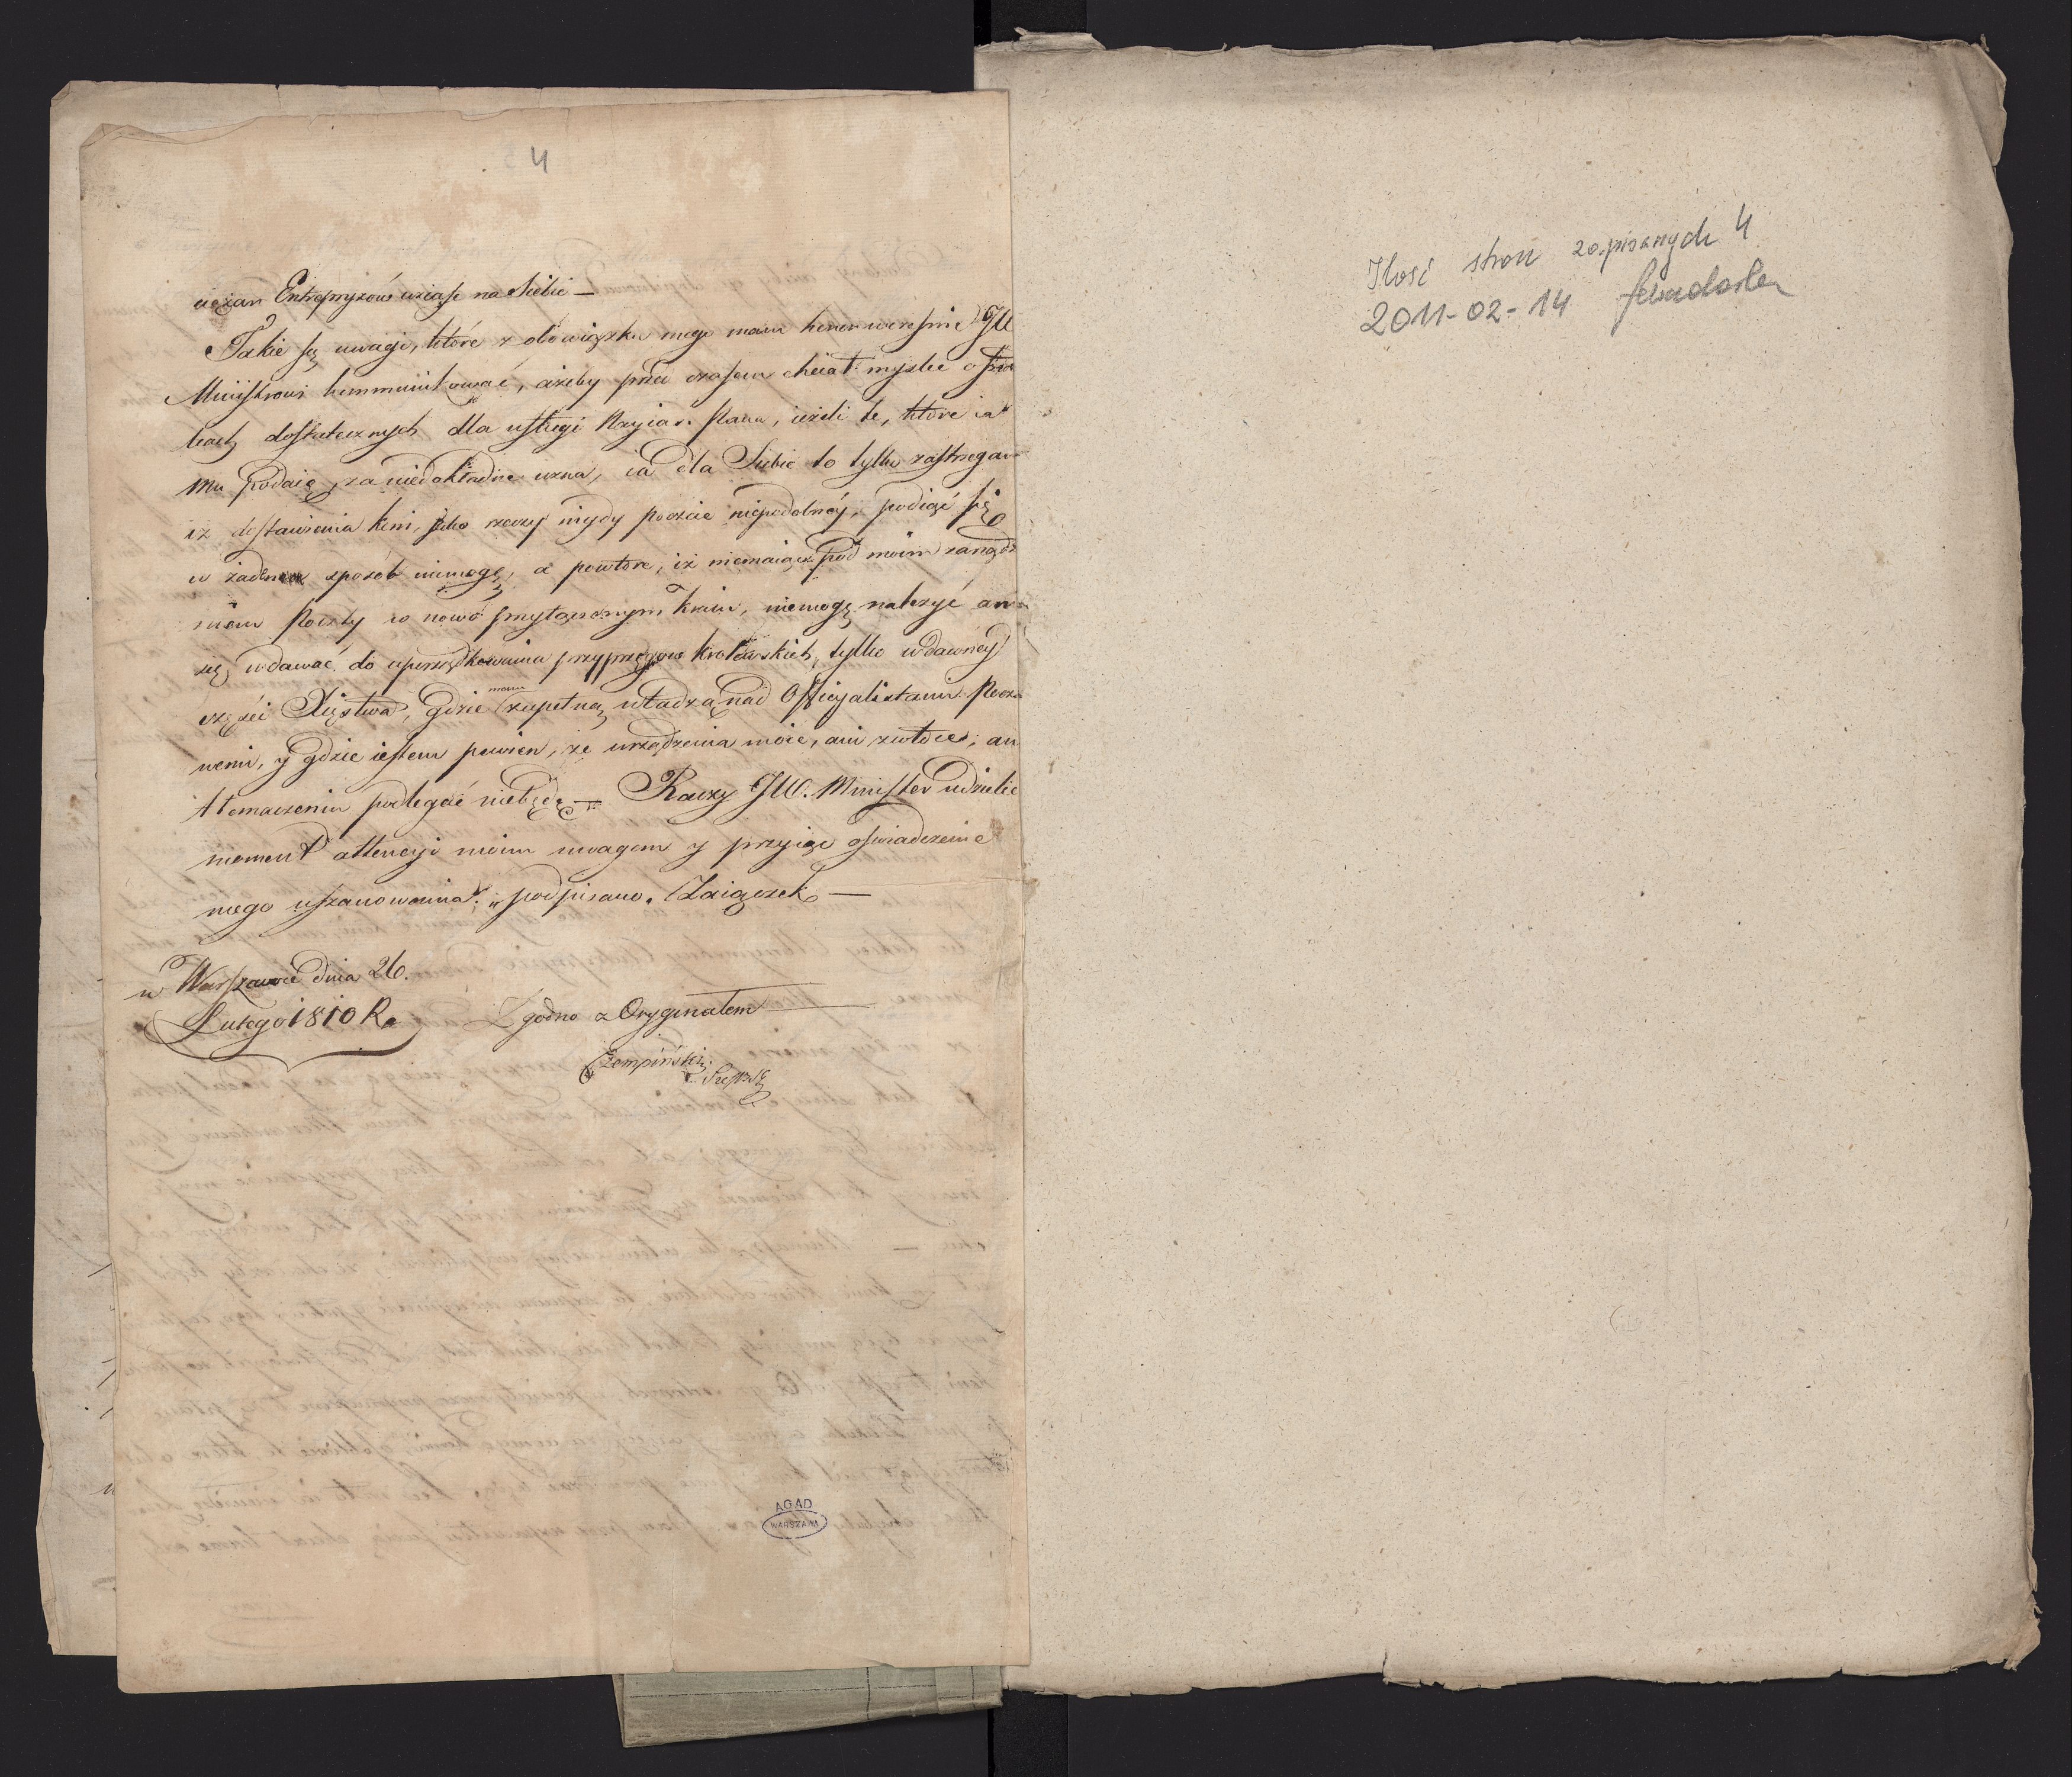 4
ciężar Entrepryzów wziąść na siebie —
Takie są uwagi, które z obowiązku mego mam honor wcześnie JW
Ministrowi kommunikować, ażeby przed czasem chciał myśleć o
kach dostatecznych dla usługi Nayias. Pana, ieżeli te, które ia
mu podaię, za niedokładne uzna, ia dla Siebie to tylko zastrzegam
iż dostawienia koni, jako rzeczy nigdy poczcie niepodobnéy, podiąć się
w żaden sposób niemogę, a powtóre, iż niemaiąc pod moim zarządze
niem Poczty w nowo przyłączonym Kraiu, niemogę należyć ani
się wdawać do uporządkowania przyprzęgów Królewskich, tylko w dawnéy
części Xięstwa, gdzie mam zupełną władzą nad Officyalistami Pocz
wemi, y gdzie iestem pewien, że urządzenia moie, ani zwłoce, ani
tłomaczeniu podlegać niebędą — Raczy JW. Minister udzielić
moment attencyi moim uwagom y przyiąć oświadczenie
mego uszanowania. „ podpisano. Zaiączek —
w Warszawie dnia 26.
Lutego 1810 R.
Zgodno z Oryginałem
Czempiński
AGAD
WARSZAWA
Ilość stron zapisanych 4
2011-02-14